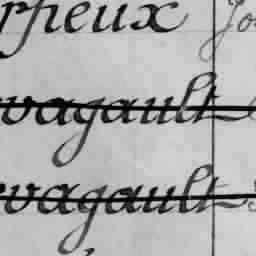 rfieux Jo
evagault
evagault